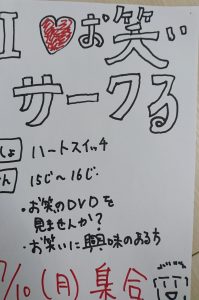 I ❤お笑い
サークる
しょ ハートスイッチ
かん 15じ〜16じ
・お笑のDVDを
見ませんか?
・お笑いに興味のある方
7/10(月)集合